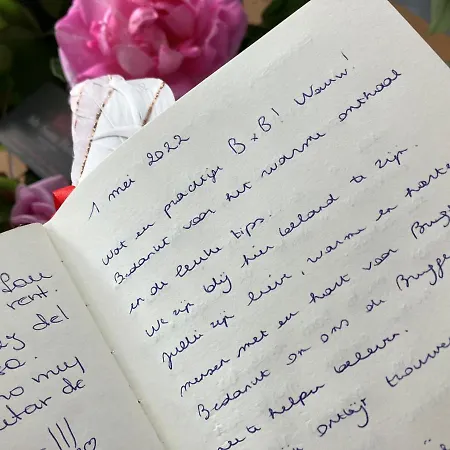 1 mei 2022
Wat een prachtige B&B! Wauw!
Bedankt voor het warme onthaal
en de leuke tips.
We zijn blij hier beland te zijn.
Jullie zijn lieve, warme en
mensen met een hart voor
Bedankt om ons de
te helpen beleven.
ontbijt
rent.
del
muy
de
!!!